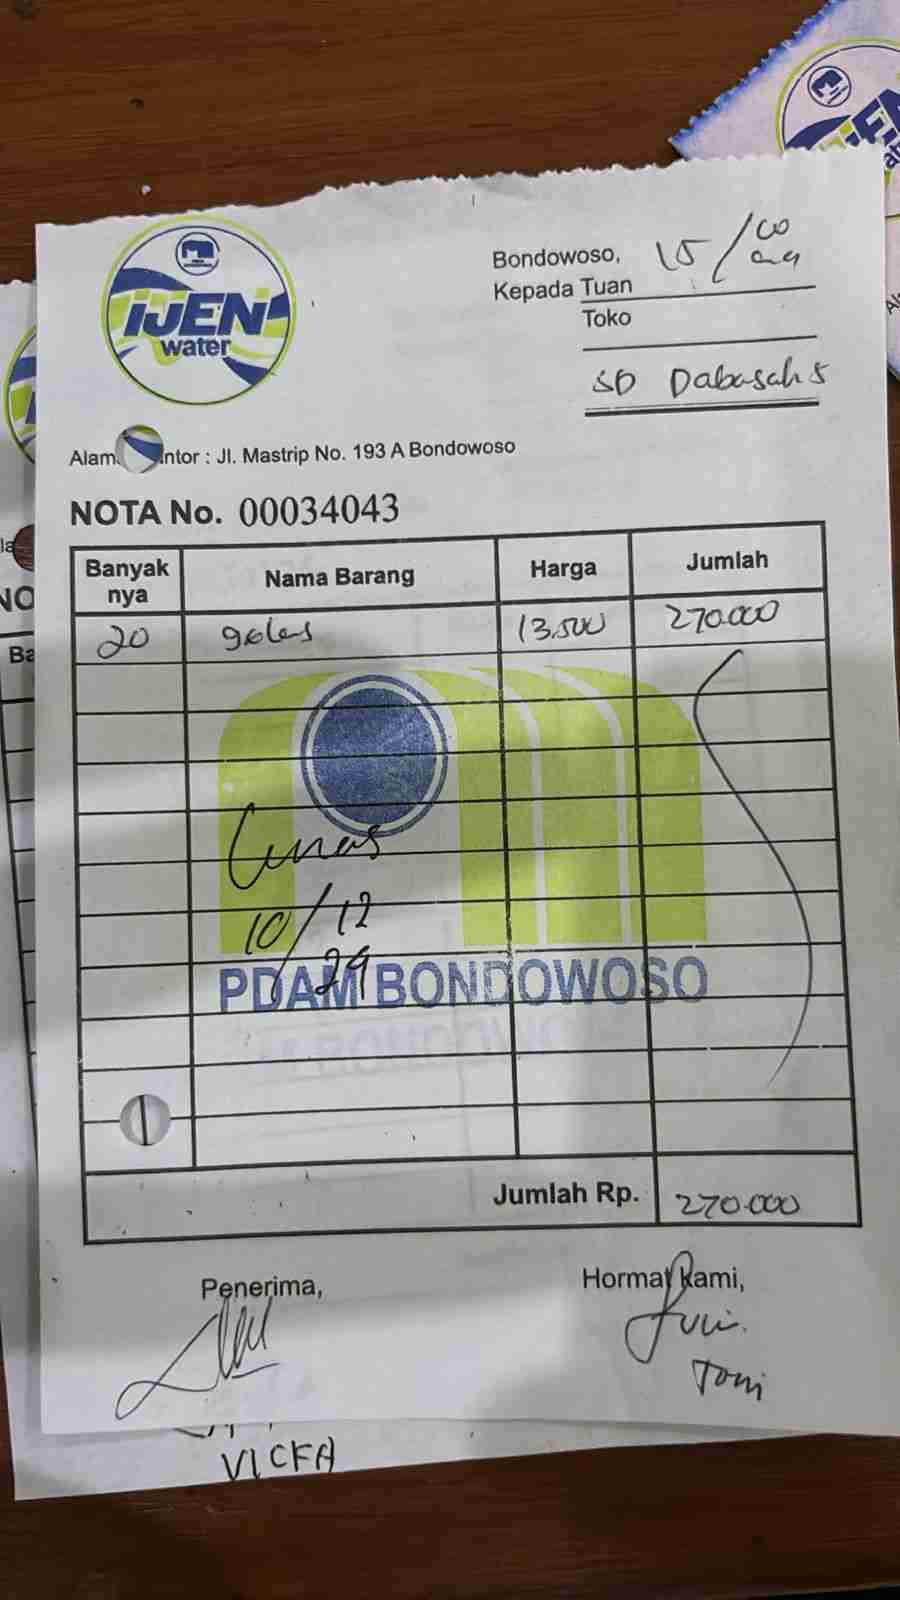 IJEN
water
Bondowoso, 15/
Kepada Tuan
Toko
SD Dabasah 5
Alam ntor : Jl. Mastrip No. 193 A Bondowoso
NOTA No. 00034043
Banyak nya Nama Barang Harga Jumlah
20 gelas 13.500 270.000
Lunas
10/12
24
PDAM BONDOWOSO
Jumlah Rp. 270.000
Penerima, Hormat kami,
Toni
VICFA